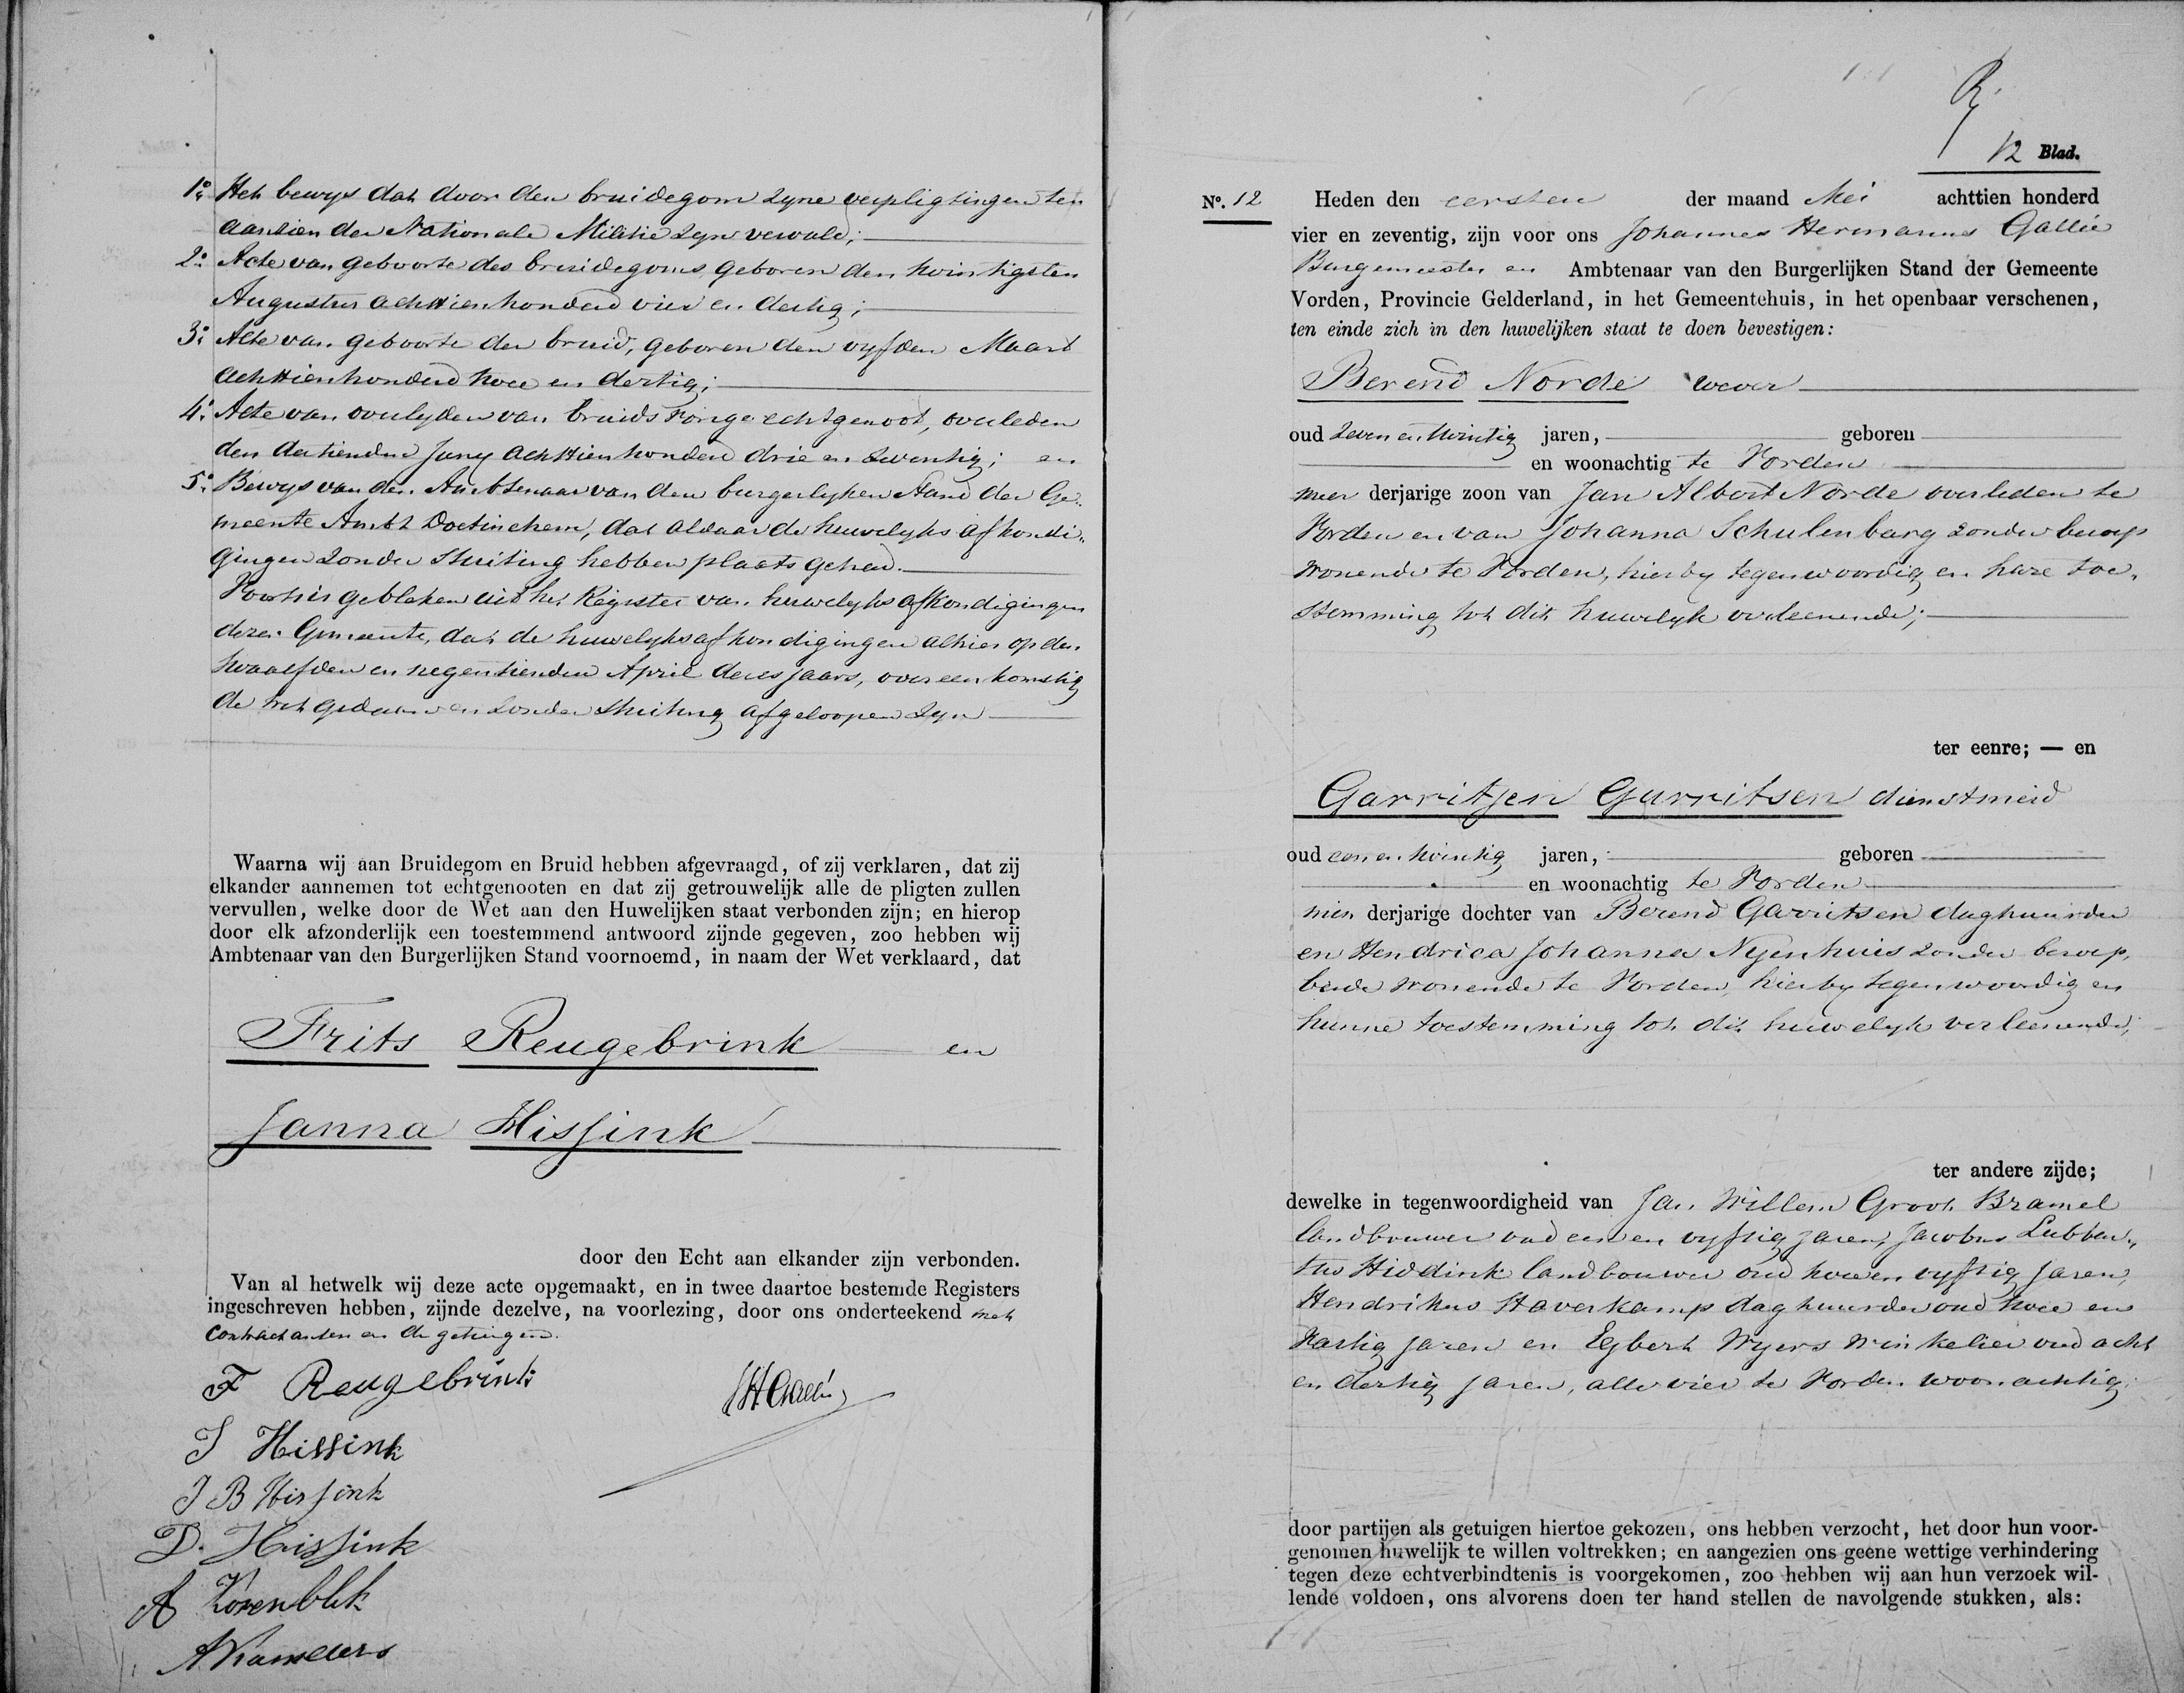 1o. Het bewys dat door den bruidegom zyne verpligtingen ten
aanzien der Nationale Militie zyn vervuld;
2o. Acte van geboorte des bruidegoms, geboren den twintigsten
Augustus achttienhonderd vier en dertig;
3o. Acte van geboorte der bruid, geboren den vyfden Maart
achttienhonderd twee en dertig;
4o. Acte van overlyden van bruids vorige echtgenoot, overleden
den dertienden Juny achttienhonderd drie en zeventig; en
5o. Bewys van den Ambtenaar van den burgerlyken stand der Ge-
meente Ambt Doetinchem, dat aldaar de huwelyks afkondi-
gingen zonder stuiting hebben plaats gehad.
Voorts is gebleken uit het Register van huwelyks afkondigingen
dezer Gemeente, dat de huwelyksafkondigingen alhier op den
twaalfden en negentienden April dezes jaars, overeenkomstig
de wet gedaan en zonder stuiting afgeloopen zyn
Waarna wij aan Bruidegom en Bruid hebben afgevraagd, of zij verklaren, dat zij
elkander aannemen tot echtgenooten en dat zij getrouwelijk alle de pligten zullen
vervullen, welke door de Wet aan den Huwelijken staat verbonden zijn; en hierop
door elk afzonderlijk een toestemmend antwoord zijnde gegeven, zoo hebben wij
Ambtenaar van den Burgerlijken Stand voornoemd, in naam der Wet verklaard, dat
Frits Reugebrink en
Janna Hissink
door den Echt aan elkander zijn verbonden.
Van al hetwelk wij deze acte opgemaakt, en in twee daartoe bestemde Registers
ingeschreven hebben, zijnde dezelve, na voorlezing, door ons onderteekend met
contractanten en de getuigen.
F Reugebrink
J H Gallée
J Hissink
J B Hissink
D. Hissink
A

12 Blad.
No. 12 Heden den eersten der maand Mei achttien honderd
vier en zeventig, zijn voor ons Johannes Hermanus Gallée
Burgemeester en Ambtenaar van den Burgerlijken Stand der Gemeente
Vorden, Provincie Gelderland, in het Gemeentehuis, in het openbaar verschenen,
ten einde zich in den huwelijken staat te doen bevestigen:
Berend Norde wever
oud zeven en twintig jaren, geboren
en woonachtig te Vorden
meer derjarige zoon van Jan Albert Norde overleden te
Vorden en van Johanna Schulenbarg zonder beroep
wonende te Vorden, hierby tegenwoordig en hare toe-
stemming tot dit huwelyk verleenende;
ter eenre; — en
Garritjen Garritsen dienstmeid
oud een en twintig jaren, geboren
en woonachtig te Vorden
min derjarige dochter van Berend Garritsen daghuurder
en Hendrica Johanna Nyenhuis zonder beroep,
beide wonende te Vorden, hierby tegenwoordig en
hunne toestemming tot dit huwelyk verleenende;
ter andere zijde;
dewelke in tegenwoordigheid van Jan Willem Groot Bramel
landbouwer oud een en vyftig jaren, Jacobus Lubber-
tus Hiddink landbouwer oud twee en vyftig jaren,
Hendrikus Staverkamp daghuurder oud twee en
veertig jaren en Egbert Wyers winkelier oud acht
en dertig jaren, alle vier te Vorden woonachtig;
door partijen als getuigen hiertoe gekozen, ons hebben verzocht, het door hun voor-
genomen huwelijk te willen voltrekken; en aangezien ons geene wettige verhindering
tegen deze echtverbindtenis is voorgekomen, zoo hebben wij aan hun verzoek wil-
lende voldoen, ons alvorens doen ter hand stellen de navolgende stukken, als: